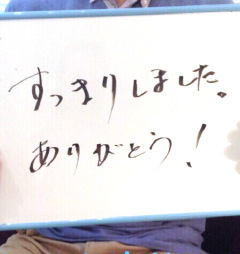 すっきりしました。
ありがとう!